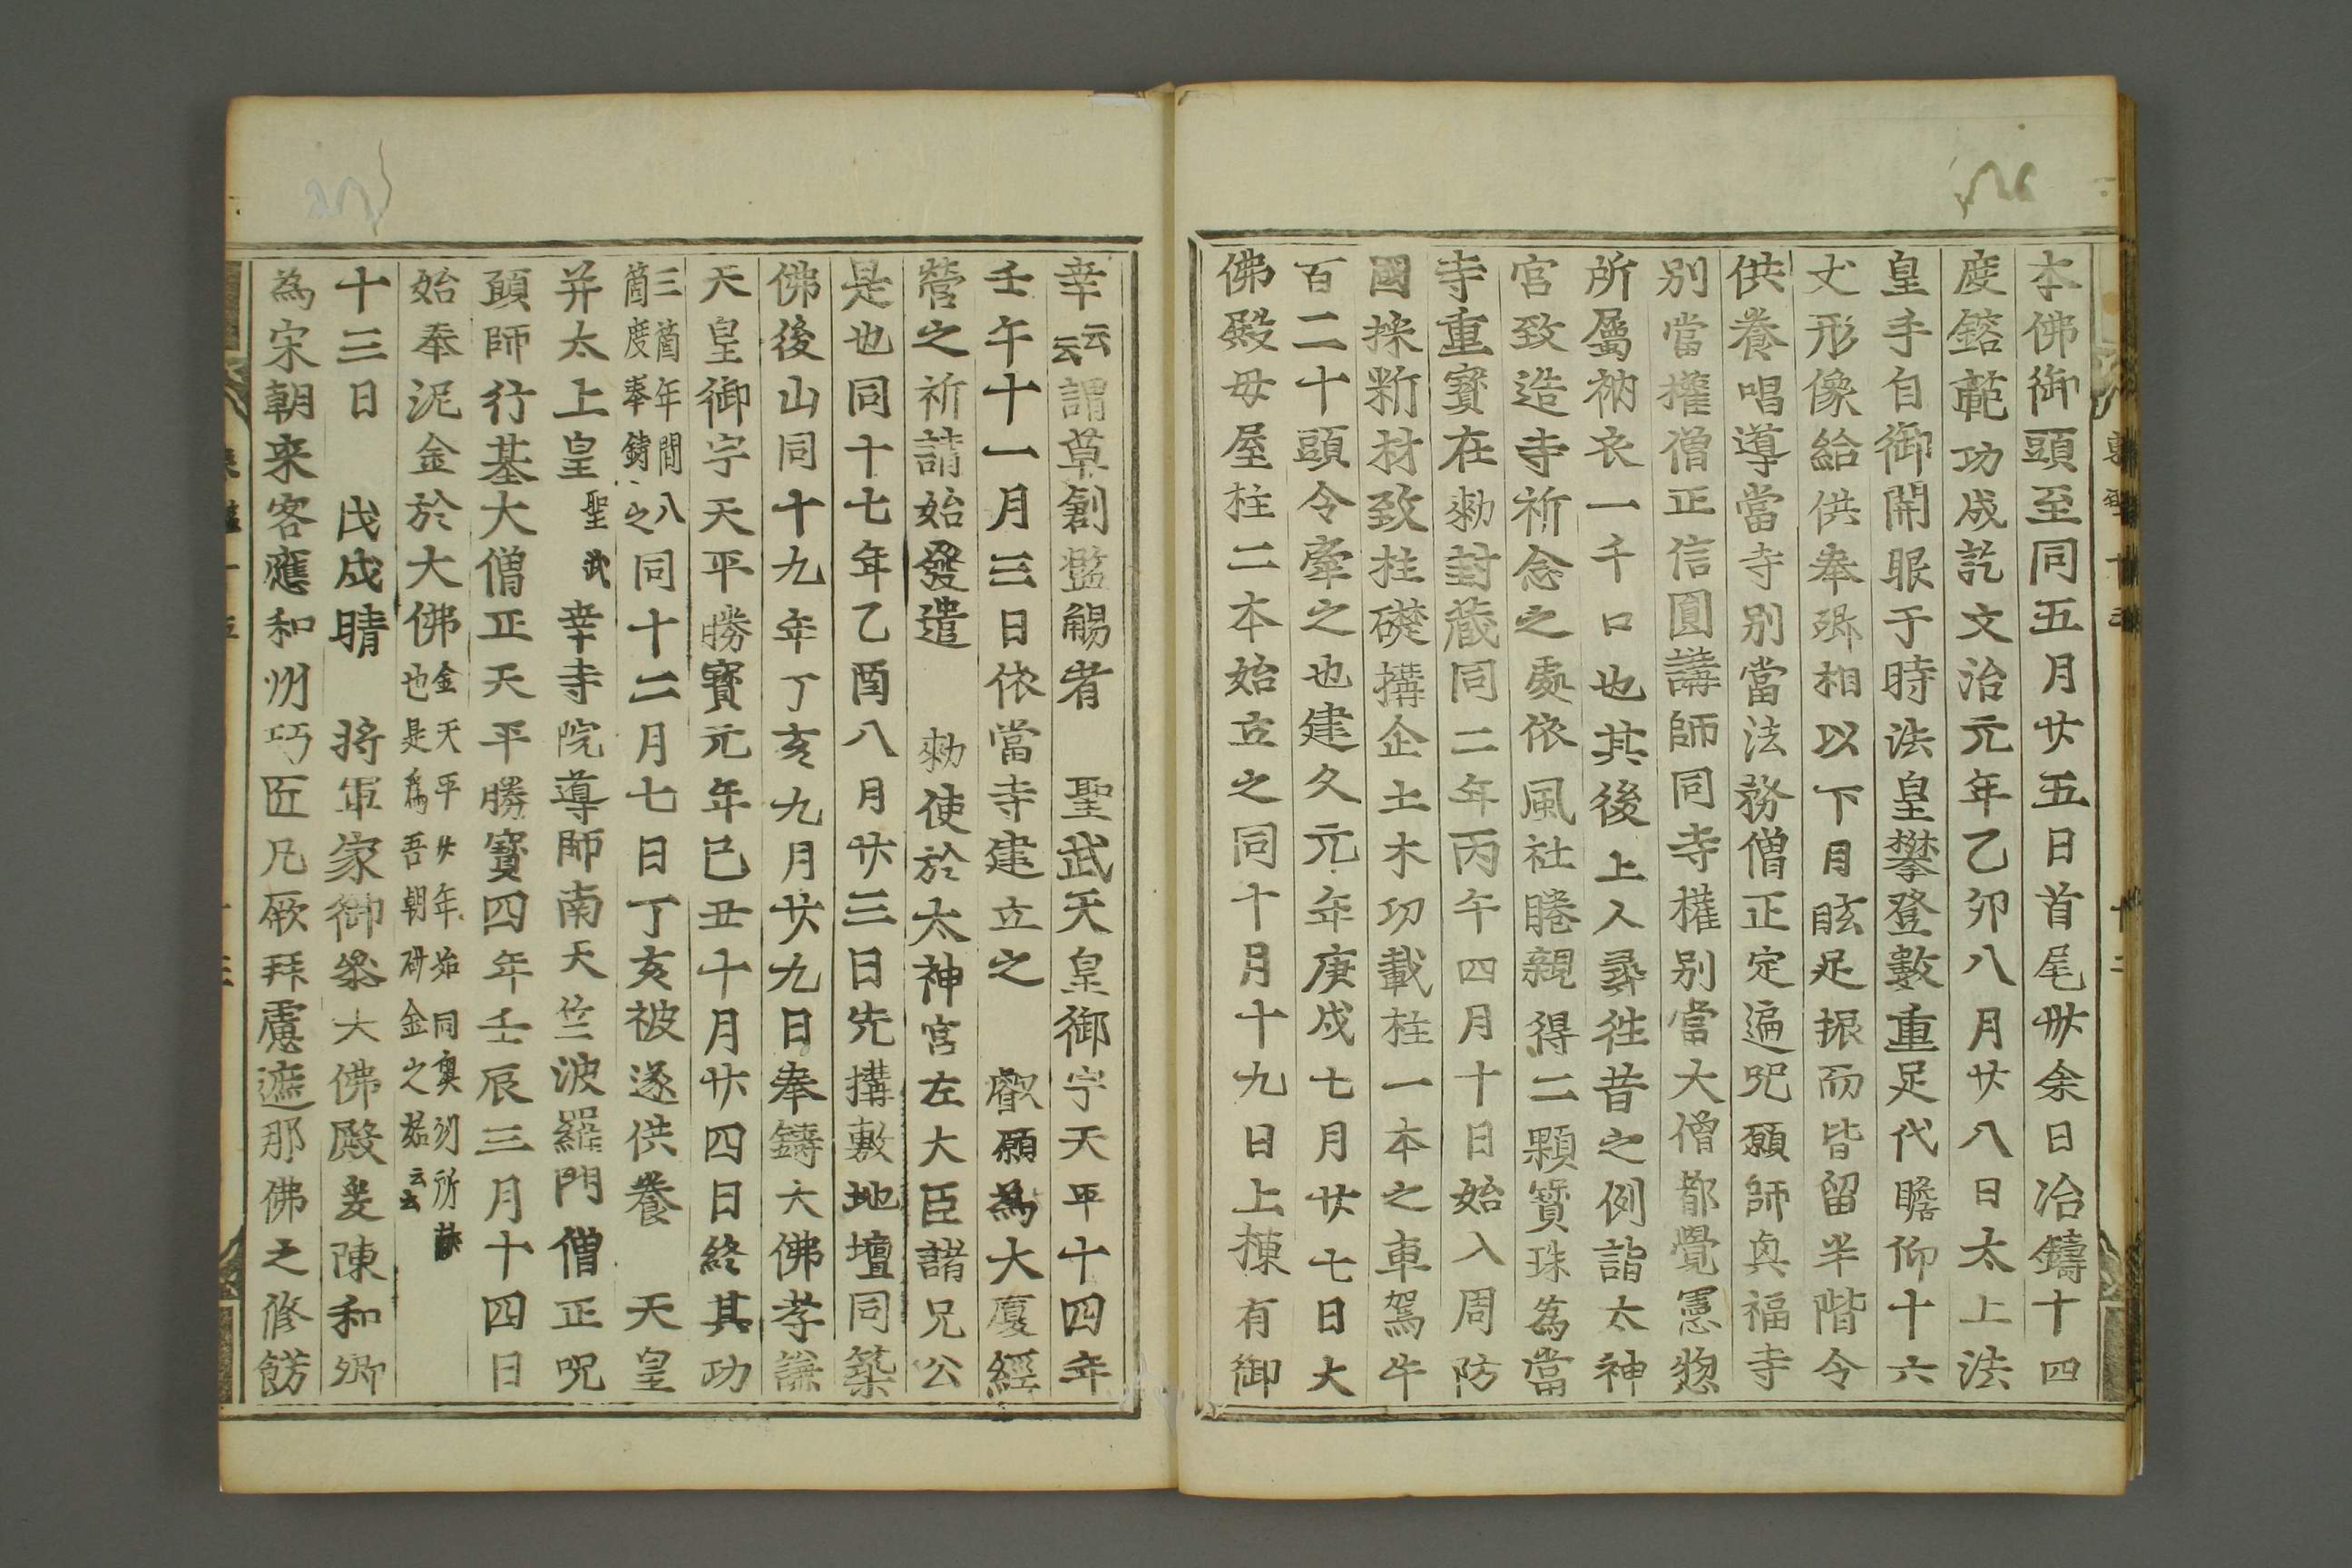 本佛御頭至同五月廿五日首尾丗余日冶鑄十四
度鎔範功成訖文治元年乙卯八月廿八日太上法
皇手自御開眼于時法皇攀登數重足代瞻仰十六
丈形像給供奉卿相以下月眩足振而皆留半階令
供養唱導當寺別當法務僧正定遍咒願師真福寺
別當權僧正信圓講師同寺權別當大僧都覺憲惣
所屬衲衣一千口也其後上人尋徃昔之例詣太神
宮致造寺祈念之處依風社睠親得二顆寶珠為當
寺重寳在勅封藏同二年丙午四月十日始入周防
國採新材致柱礎搆企土木功載柱一本之車駕牛
百二十頭令牽之也建久元年庚戌七月廿七日大
佛殿母屋柱二本始立之同十月十九日上棟有御
幸云云謂草創濫觴者　聖武天皇御宇天平十四年
壬午十一月三日依當寺建立之　叡願為大厦經
營之祈請始發遣　勅使於太神宮左大臣諸兄公
是也同十七年乙酉八月廿三日先搆敷地壇同築
佛後山同十九年丁亥九月廿九日奉鑄大佛孝謙
天皇御宇天平勝寳元年己丑十月廿四日終其功
三箇年間八箇度奉鑄之同十二月七日丁亥被遂供養　天皇
并太上皇聖武幸寺院導師南天竺波羅門僧正咒
願師行基大僧正天平勝寳四年壬辰三月十四日
始奉泥金於大佛金天平廿年始同奥州所献也是為吾朝研金之始云云
十三日　戊戌晴　將軍家御參大佛殿爰陳和卿
為宋朝来客應和州巧匠凡厥拜盧遮那佛之修餝